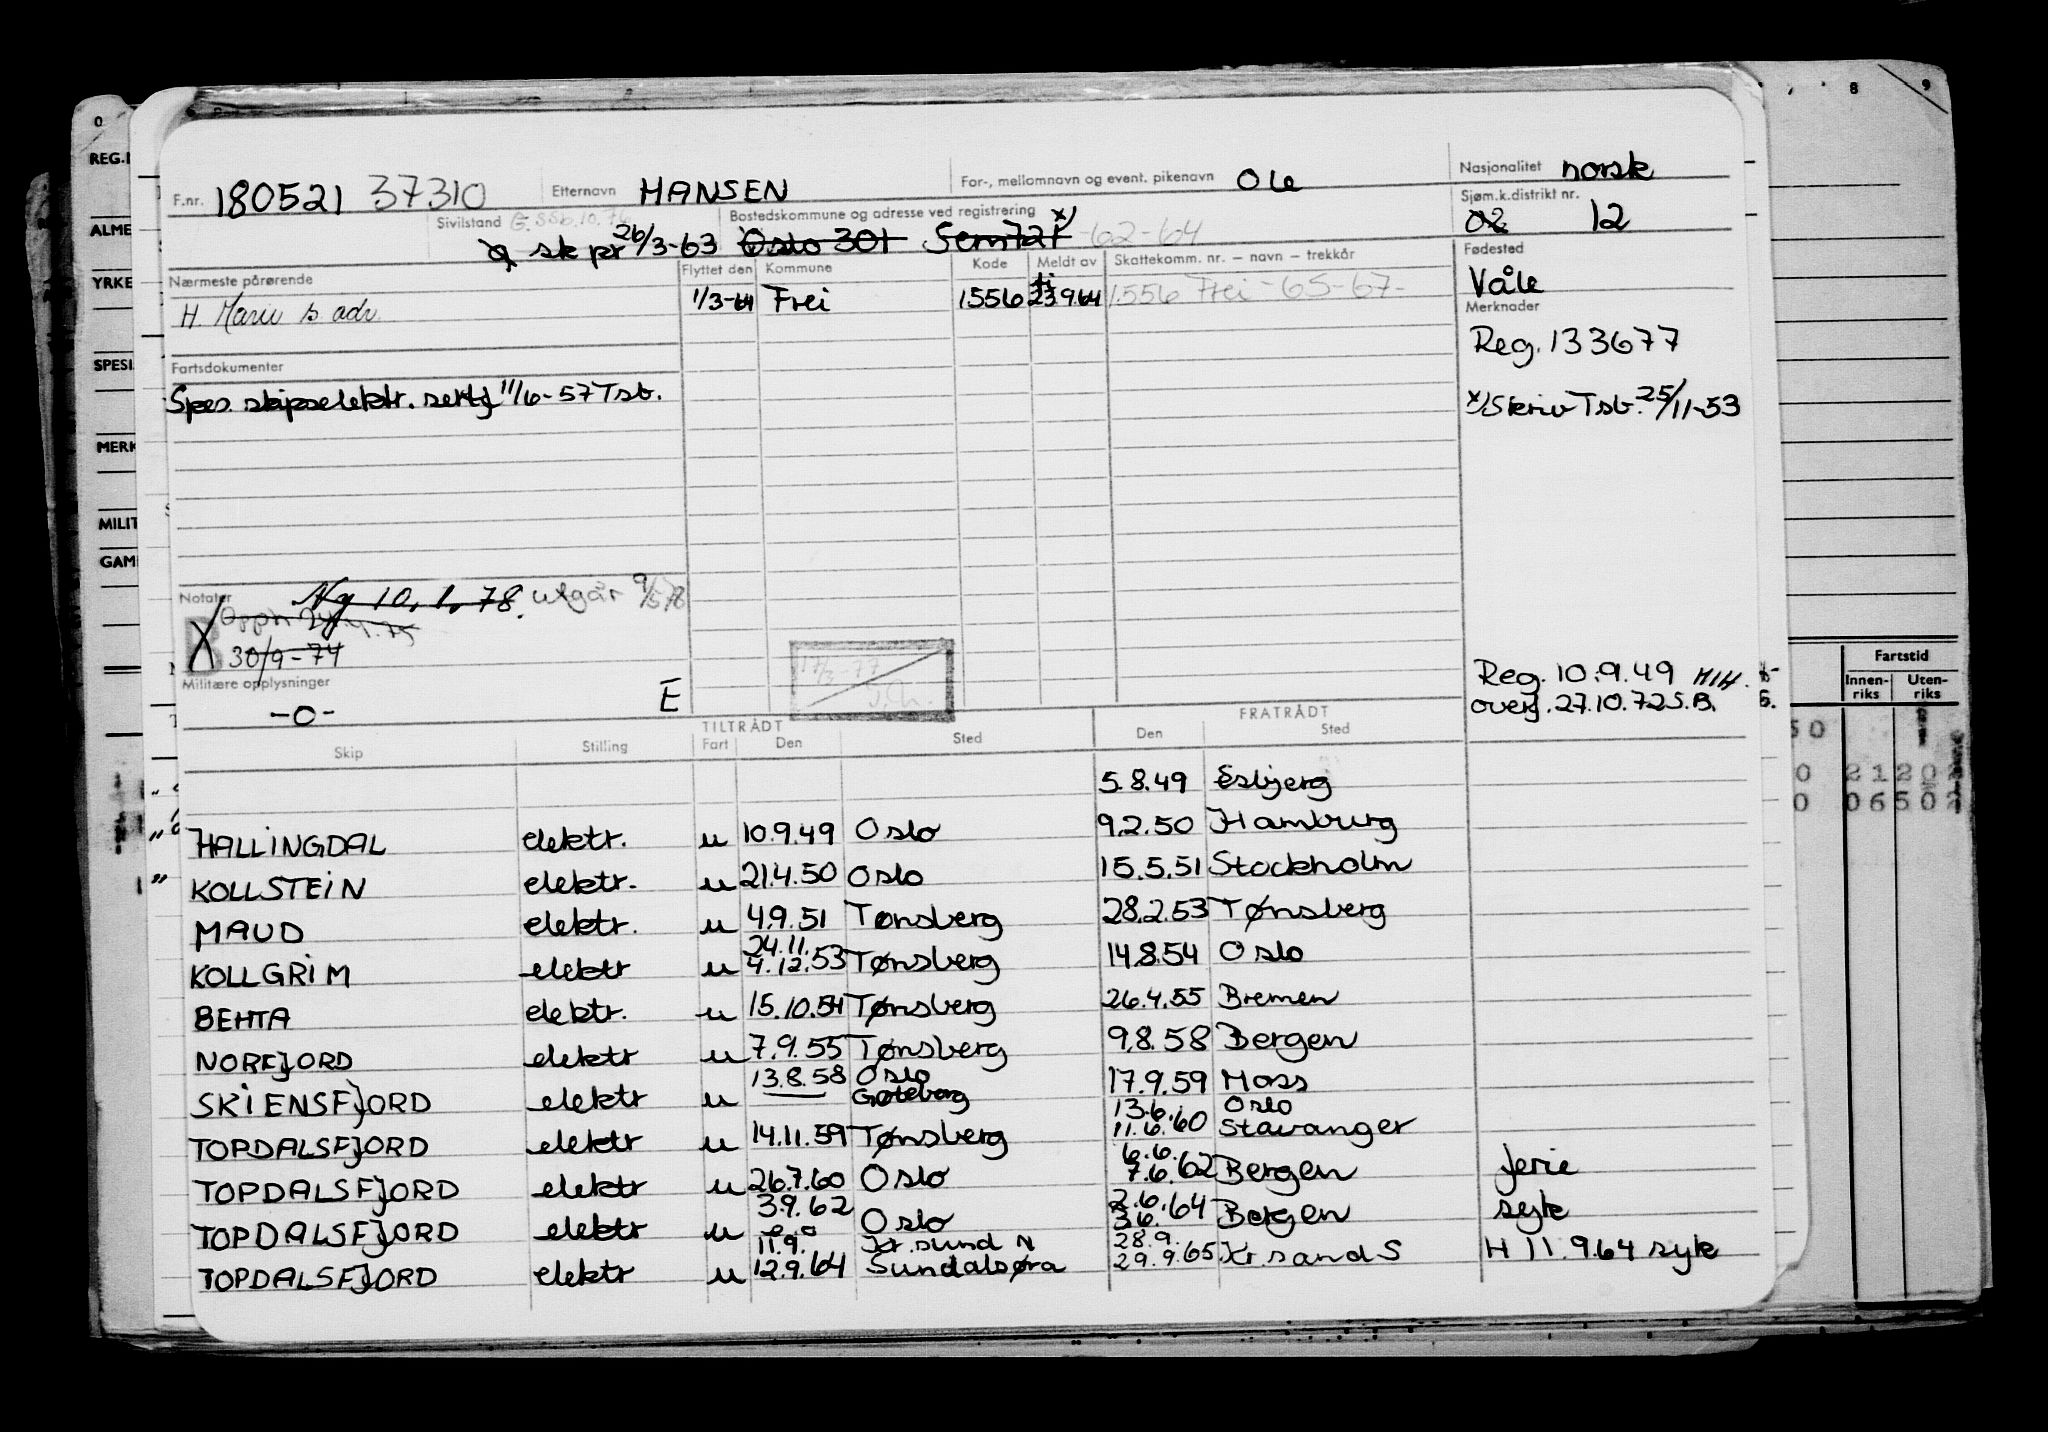 F.nr. 180521 37310 Etternavn HANSEN For-, mellomnavn og event. pikenavn Ole Nasjonalitet norsk
Sivilstand G. SSb.10.76 Bostedskommune og adresse ved registrering x) Sjøm.k.distrikt nr.
sk pr 26/3-63 Oslo 301 Sem 721 -62-64 02 12
Nærmeste pårørende Flyttet den Kommune Kode Meldt av Skattekomm. nr. — navn — trekkår Fødested
H. Marie s adr. 1/3-64 Frei 1556 23.9.64 1556 Frei-65-67- Våle
Merknader
Reg. 133677
Fartsdokumenter
Spes. skipselektr. sertf 11/6-57 Tsb. x) Skriv Tsb. 25/11-53
Notater Ny 10.1.78. utgår 9/5 78
B
30/9-74
17/3-77
Militære opplysninger E Reg. 10.9.49 HIH.
-0- overf. 27.10.72 S.B.
TILTRÅDT FRATRÅDT
Skip Stilling Fart Den Sted Den Sted
5.8.49 Esbjerg
HALLINGDAL elektr. u 10.9.49 Oslo 9.2.50 Hamburg
KOLLSTEIN elektr. u 21.4.50 Oslo 15.5.51 Stockholm
MAUD elektr. u 4.9.51 Tønsberg 28.2.53 Tønsberg
24.11.
KOLLGRIM elektr u 4.12.53 Tønsberg 14.8.54 Oslo
BEHTA elektr. u 15.10.54 Tønsberg 26.4.55 Bremen
NORFJORD elektr u 7.9.55 Tønsberg 9.8.58 Bergen
13.8.58 Oslo
SKIENSFJORD elektr u Gøteborg 17.9.59 Moss
13.6. Oslo
TOPDALSFJORD elektr u 14.11.59 Tønsberg 11.6.60 Stavanger
6.6.
TOPDALSFJORD elektr u 26.7.60 Oslo 7.6.62 Bergen ferie
3.9.62 2.6.64
TOPDALSFJORD elektr u Oslo 3.6. Bergen syk
11.9. Kr.sund N 28.9.
TOPDALSFJORD elektr u 12.9.64 Sundalsøra 29.9.65 Kr sand S H 11.9.64 syk
0
REG.
ALME
YRKE
SPESI
MERK
MILIT
GAM
8 9
Fartstid
Innen-riks Uten-riks
50
0 21 20
0 06 50